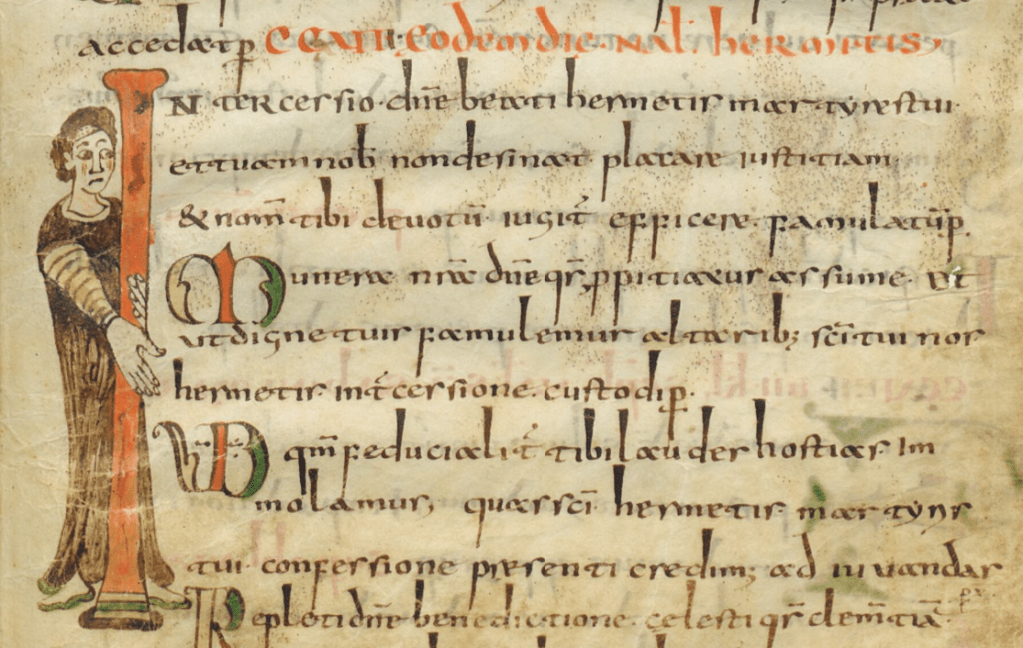 accedat p CCXII. Eodem die. Nat. hermetis,
INtercessio. dn̄e beati hermetis martyrestui.
et tuam nob nondesinat. placare iustitiam.
& nom̄ tibi devotū. iugit̄ efficere. famulatū. p.
Munera nr̄a dn̄e qr̄. ppitiatus assume. Ut
ut digne tuis famulemur altarib; sc̄i tui nos
hermetis. int̄cessione. custodi. p.
qm̄ feducialit̄ tibi laudes hostias Im
molamus; quas sc̄i hermetis martyris
tui. confessione presenti credim; ad iuvandas
Repleti dn̄e benedictione. celesti qr̄ clem̄tiā